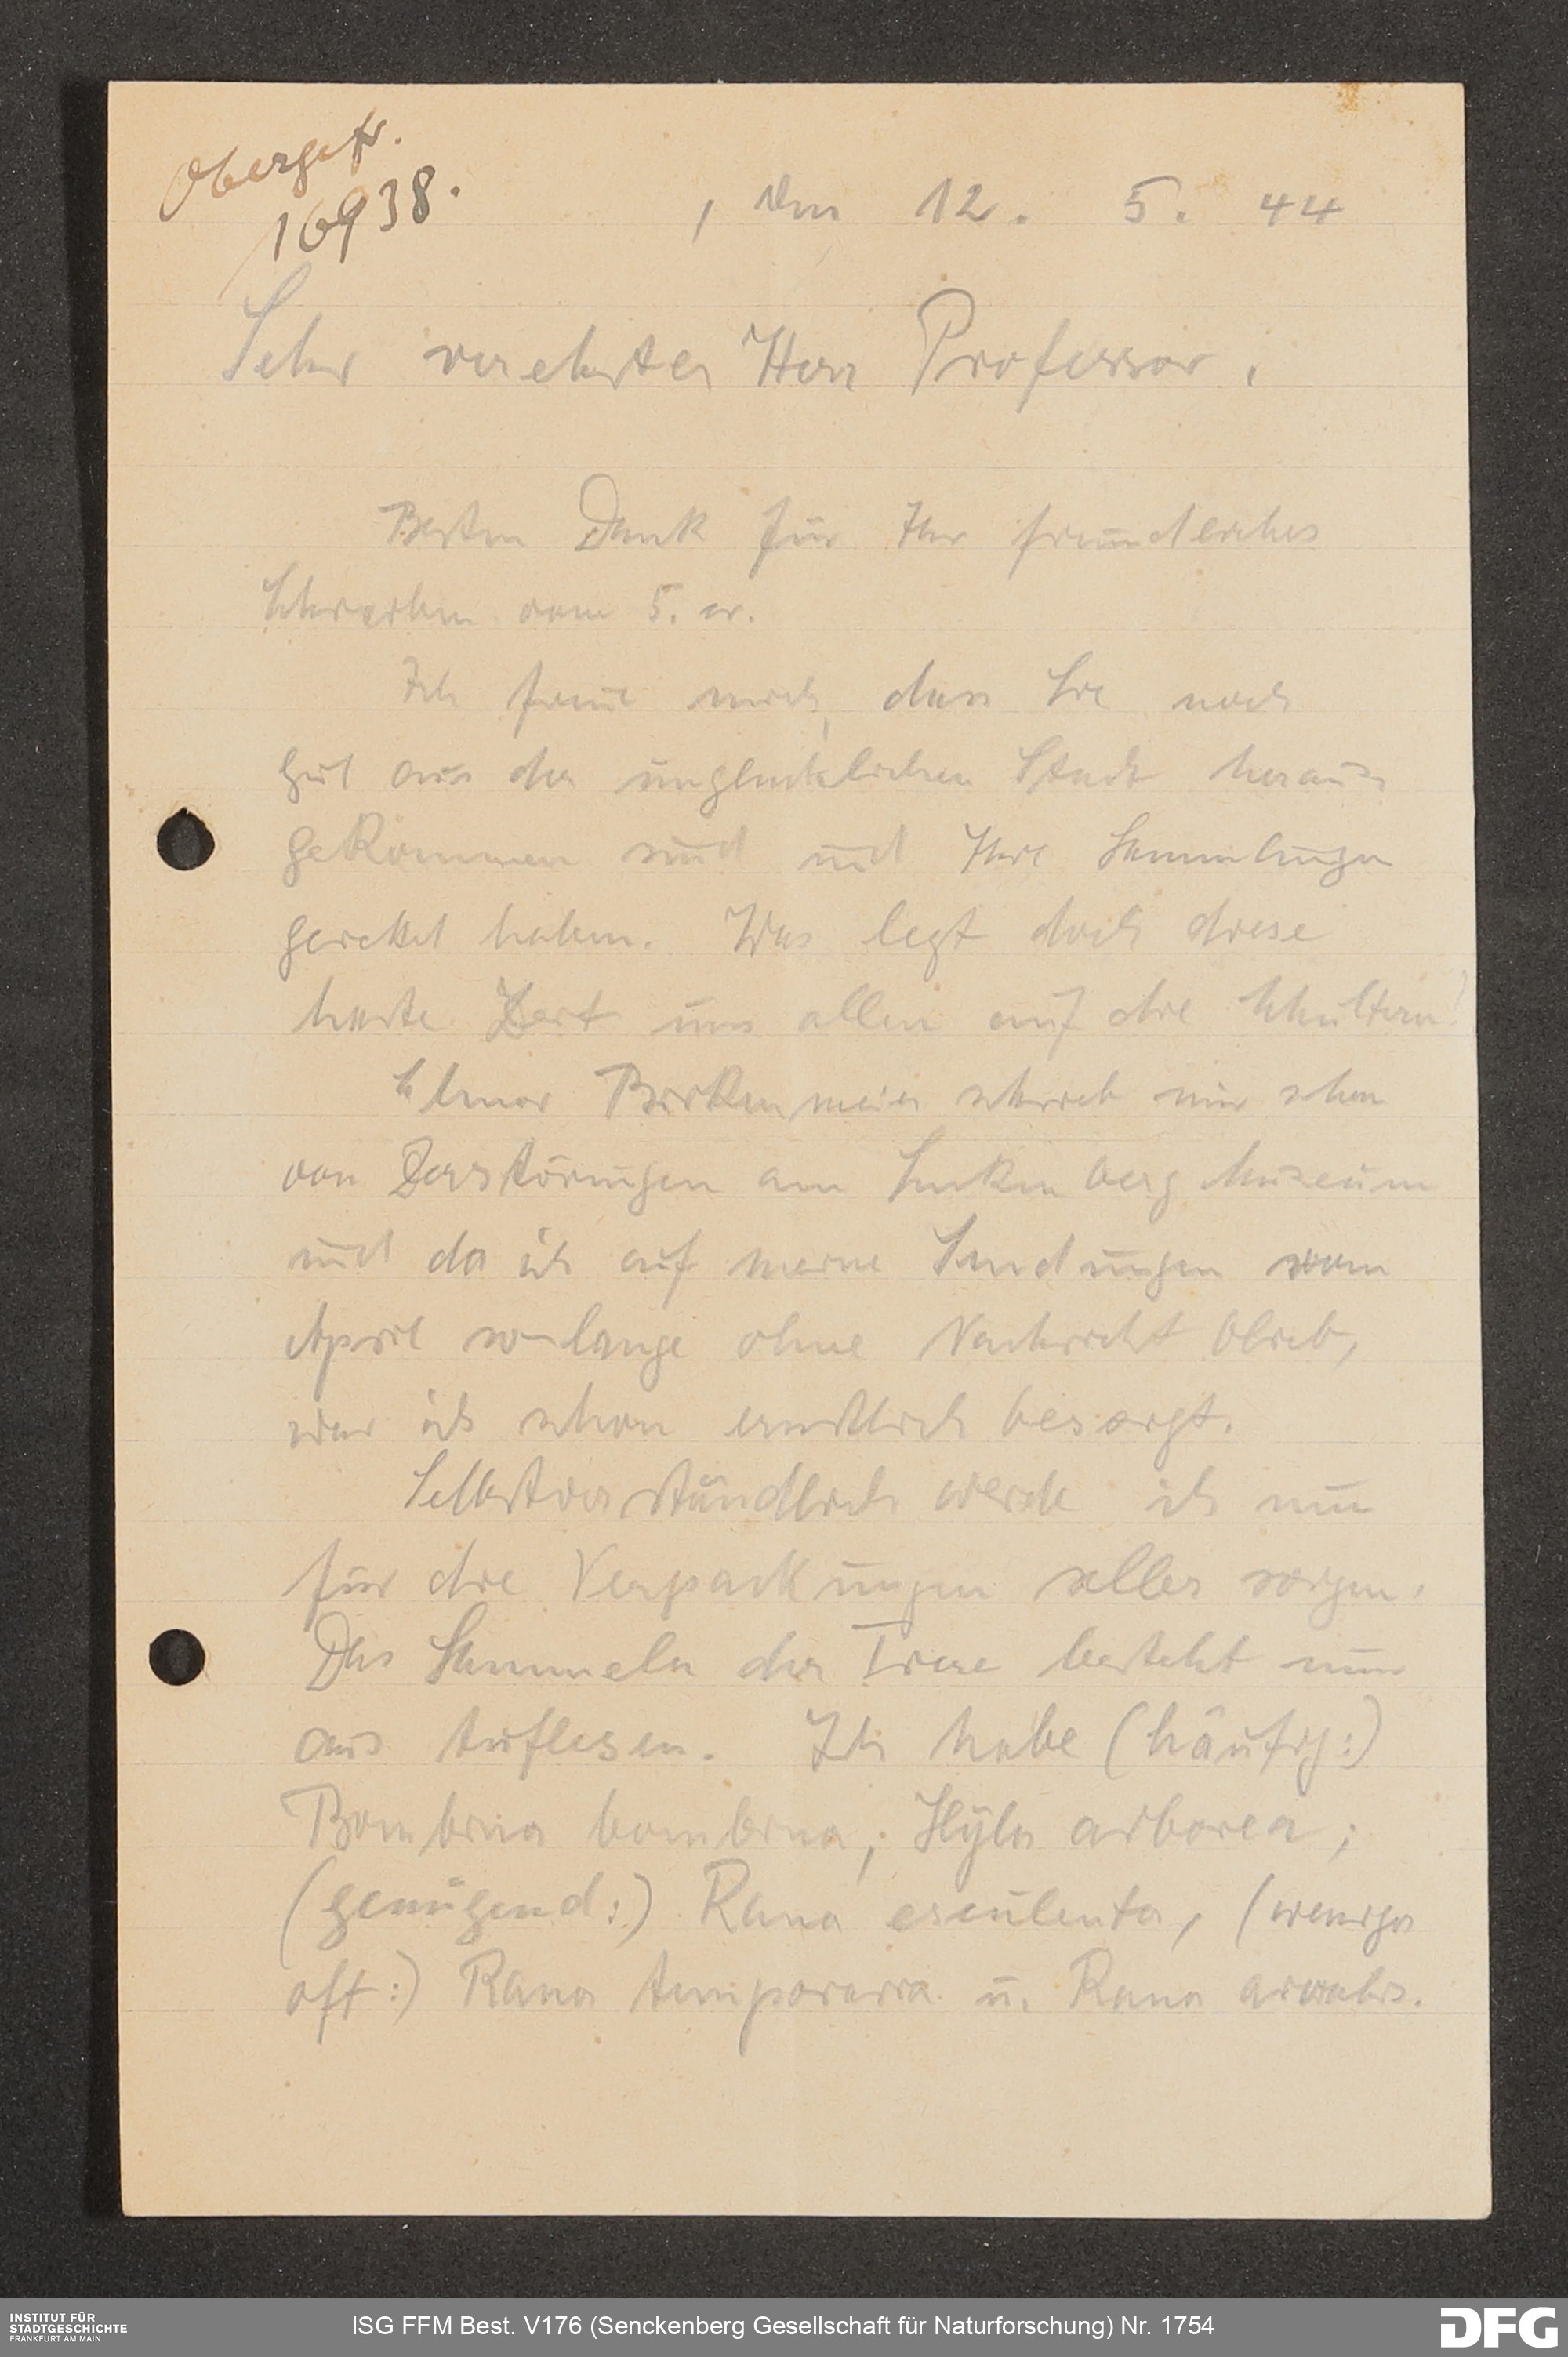 Obergefr.
16938.
, den 12. 5. 44
Sehr verehrter Herr Professor.
Besten Dank für Ihr freundliches
Schreiben vom 5. cr.
Ich freue mich, dass Sie noch
gut aus der unglücklichen Stadt heraus
gekommen sind und Ihre Sammlungen
gerettet haben. Was legt doch diese
harte Zeit uns allen auf die Schultern!
Elmar Birkenmeier schrieb mir schon
von Zerstörungen am Senkenberg Museum
und da ich auf meine Sendungen vom
April so lange ohne Nachricht blieb,
war ich schon ernstlich besorgt.
Selbstverständlich werde ich nun
für die Verpackungen selber sorgen.
Das Sammeln der Tiere besteht nur
aus Auflesen. Ich habe (häufig:)
Bombina bombina; Hyla arborea;
(genügend:) Rana esculenta, (weniger
oft:) Rana temporaria u. Rana arvalis.
INSTITUT FÜR
STADTGESCHICHTE
FRANKFURT AM MAIN
ISG FFM Best. V176 (Senckenberg Gesellschaft für Naturforschung) Nr. 1754
DFG